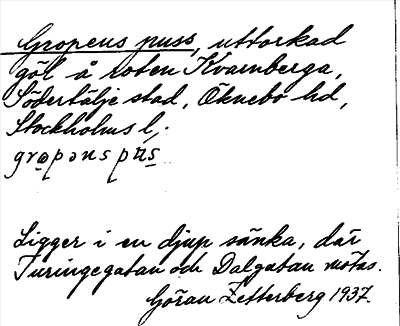 Gropens puss, uttorkad
göl å roten Kvarnberga,
Södertälje stad, Öknebo hd,
Stockholms l,.
grω̨pəns pu̇s̱
Ligger i en djup sänka, där
Turingegatan och Dalgatan mötas.
Göran Zetterberg 1937.